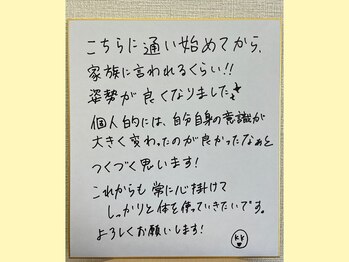 こちらに通い始めてから、
家族に言われるくらい!!
姿勢が良くなりました
個人的には、自分自身の意識が
大きく変わったのが良かったなぁと
つくづく思います!
これからも常に心掛けて
しっかりと体を使っていきたいです。
よろしくお願いします!